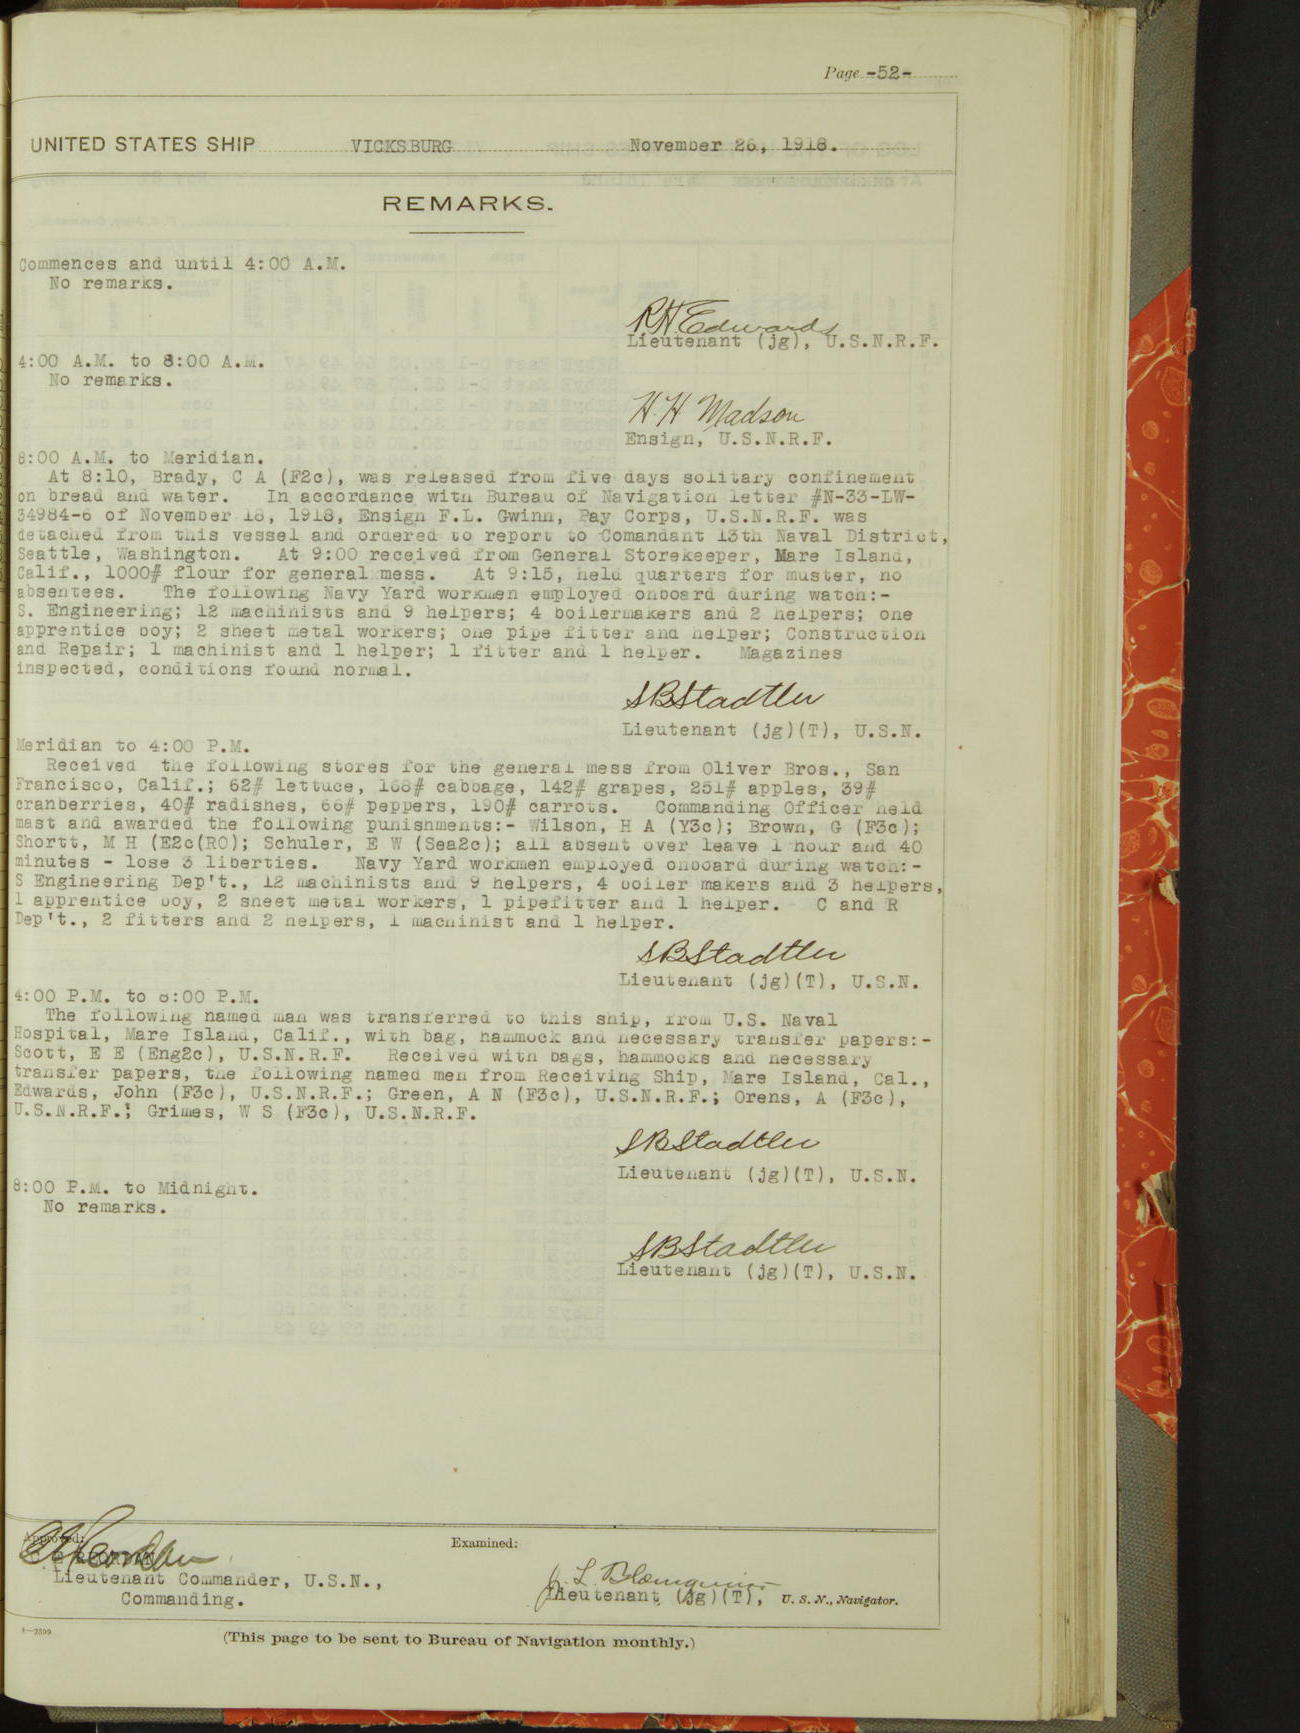 Page -52-
UNITED STATES SHIP VICKSBURG November 26, 1918.
REMARKS.
Commences and until 4:00 A.M.
No remarks.
R H Edwards
Lieutenant (jg), U.S.N.R.F.
4:00 A.M. to 8:00 A.M.
No remarks.
H H Madson
Ensign, U.S.N.R.F.
8:00 A.M. to Meridian.
At 8:10, Brady, C A (F2c), was released from five days solitary confinement
on bread and water. In accordance with Bureau of Navigation letter #N-33-LW-
34984-6 of November 18, 1918, Ensign F.L. Gwinn, Pay Corps, U.S.N.R.F. was
detached from this vessel and ordered to report to Comandant 13th Naval District,
Seattle, Washington. At 9:00 received from General Storekeeper, Mare Island,
Calif., 1000# flour for general mess. At 9:15, held quarters for muster, no
absentees. The following Navy Yard workmen employed onboard during watch:-
S. Engineering; 12 machinists and 9 helpers; 4 boilermakers and 2 helpers; one
apprentice boy; 2 sheet metal workers; one pipe fitter and helper; Construction
and Repair; 1 machinist and 1 helper; 1 fitter and 1 helper. Magazines
inspected, conditions found normal.
S B Stadtler
Lieutenant (jg)(T), U.S.N.
Meridian to 4:00 P.M.
Received the following stores for the general mess from Oliver Bros., San
Francisco, Calif.; 62# lettuce, 168# cabbage, 142# grapes, 251# apples, 39#
cranberries, 40# radishes, 66# peppers, 190# carrots. Commanding Officer held
mast and awarded the following punishments:- Wilson, H A (Y3c); Brown, G (F3c);
Shortt, M H (E2c(RO); Schuler, E W (Sea2c); all absent over leave 1 hour and 40
minutes - lose 3 liberties. Navy Yard workmen employed onboard during watch:-
S Engineering Dep't., 12 machinists and 9 helpers, 4 boiler makers and 3 helpers,
1 apprentice boy, 2 sheet metal workers, 1 pipefitter and 1 helper. C and R
Dep't., 2 fitters and 2 helpers, 1 machinist and 1 helper.
S B Stadtler
Lieutenant (jg)(T), U.S.N.
4:00 P.M. to 8:00 P.M.
The following named man was transferred to this ship, from U.S. Naval
Hospital, Mare Island, Calif., with bag, hammock and necessary transfer papers:-
Scott, E E (Eng2c), U.S.N.R.F. Received with bags, hammocks and necessary
transfer papers, the following named men from Receiving Ship, Mare Island, Cal.,
Edwards, John (F3c), U.S.N.R.F.; Green, A N (F3c), U.S.N.R.F.; Orens, A (F3c),
U.S.N.R.F.; Grimes, W S (F3c), U.S.N.R.F.
S B Stadtler
Lieutenant (jg)(T), U.S.N.
8:00 P.M. to Midnight.
No remarks.
S B Stadtler
Lieutenant (jg)(T), U.S.N.
Approved: Examined:
Lieutenant Commander, U.S.N.,
Commanding.
J. L. Blomquist
Lieutenant (jg)(T), U. S. N., Navigator.
(This page to be sent to Bureau of Navigation monthly.)